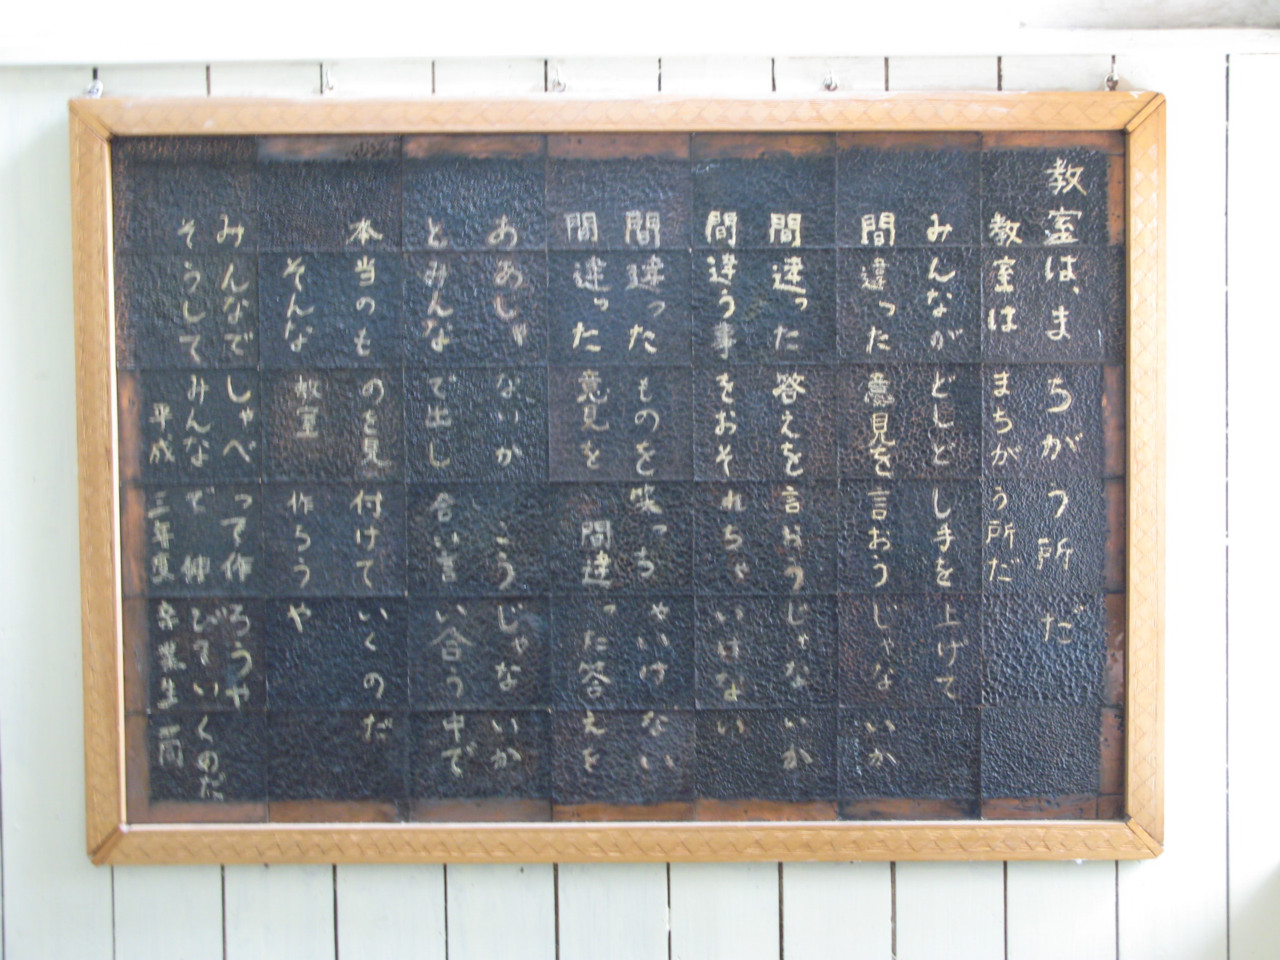 教室は、まちがう所だ
教室はまちがう所だ
みんながどしどし手を上げて
間違った意見を言おうじゃないか
間違った答えを言おうじゃないか
間違う事をおそれちゃいけない
間違ったものを笑っちゃいけない
間違った意見を間違った答えを
ああじゃないかこうじゃないか
とみんなで出し合い言い合う中で
本当のものを見付けていくのだ
そんな教室作ろうや
みんなでしゃべって作ろうや
そうしてみんなで伸びていくのだ
平成三年度卒業生一同